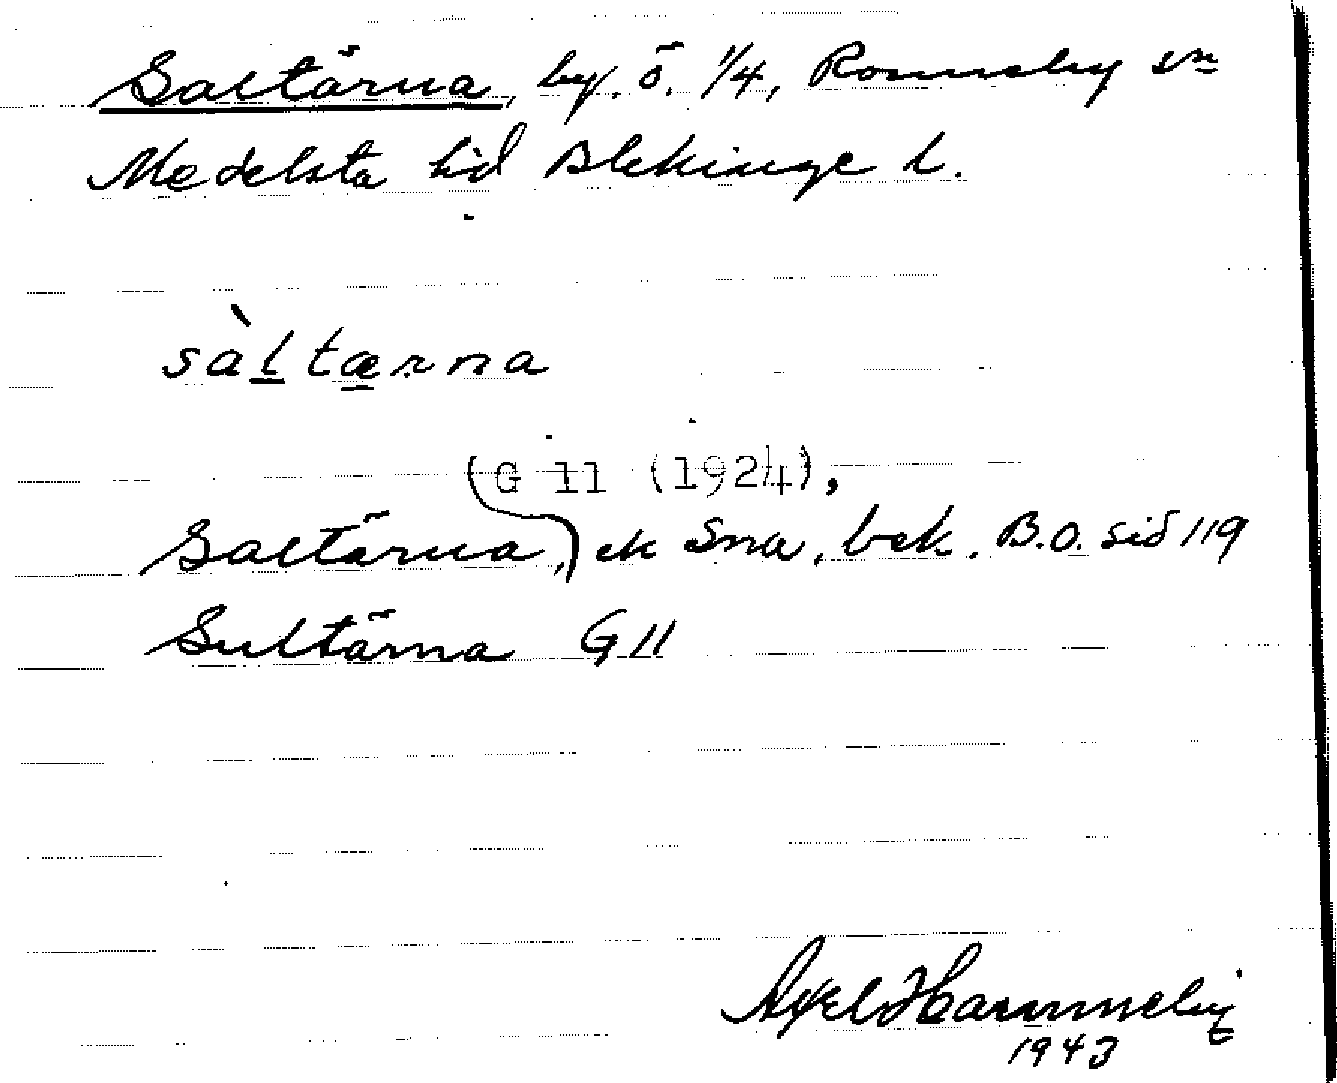 Saltärna, by. ö. 1/4, Ronneby sn
Medelsta hd Blekinge l.
sàltærna
(G 11 (1924),
Saltärna,) ek Sma, bek. B.O. sid 119
Sultärna G 11
Axel Hammeby
1943